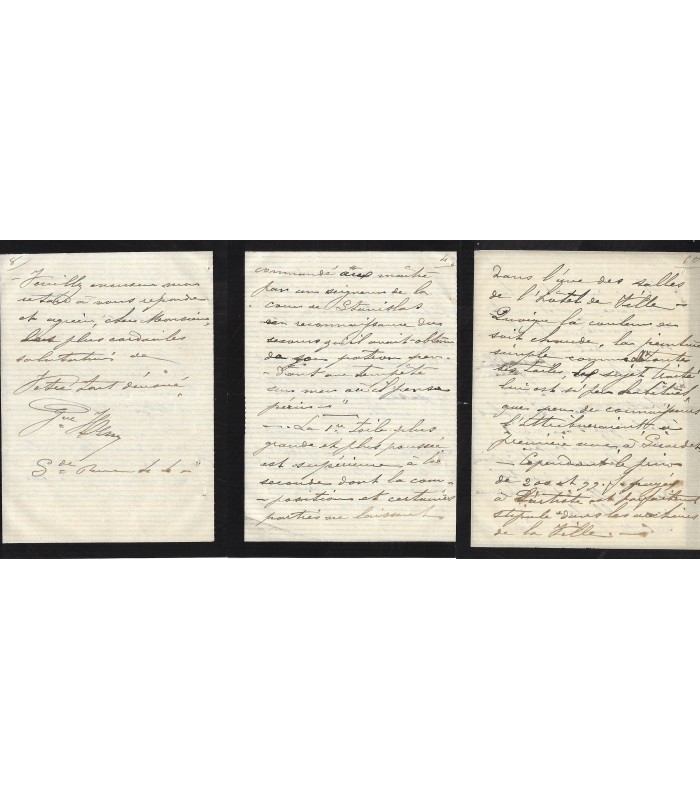 8
Veuillez
à vous répondre
et agréer, cher Monsieur,
plus cordiales
salutations de
Votre tout dévoué
Gve
4
commandé aux maître
par un seigneur de la
cour de Stanislas
en reconnaissance du
secours qu'il avait obtenu
de son patron
une tempête
sur mer où il pensa
périr
La 1re toile plus
grande et plus poussée
est supérieure à la
seconde dont la com-
-position et certaines
parties se laissent
10
dans l'une des salles
de l'Hotel de Ville
Quoique la couleur en
soit chaude, la peinture
simple comme toutes
ses toiles, le sujet traité
lui est si peu habituel
que peu de connaisseurs
l'attribueraient à
première vue, à Girardet
Cependant le prix
de 200 et payés
à l'artiste est parfaitement
stipulé dans les archives
de la Ville.